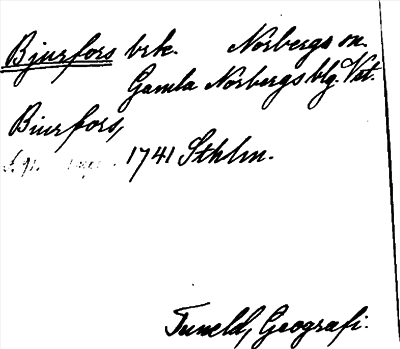 Bjurfors brk. Norbergs sn.
Gamla Norbergs blg. Vstl.
Biurfors,
1741 Sthlm.
Tuneld, Geografi.